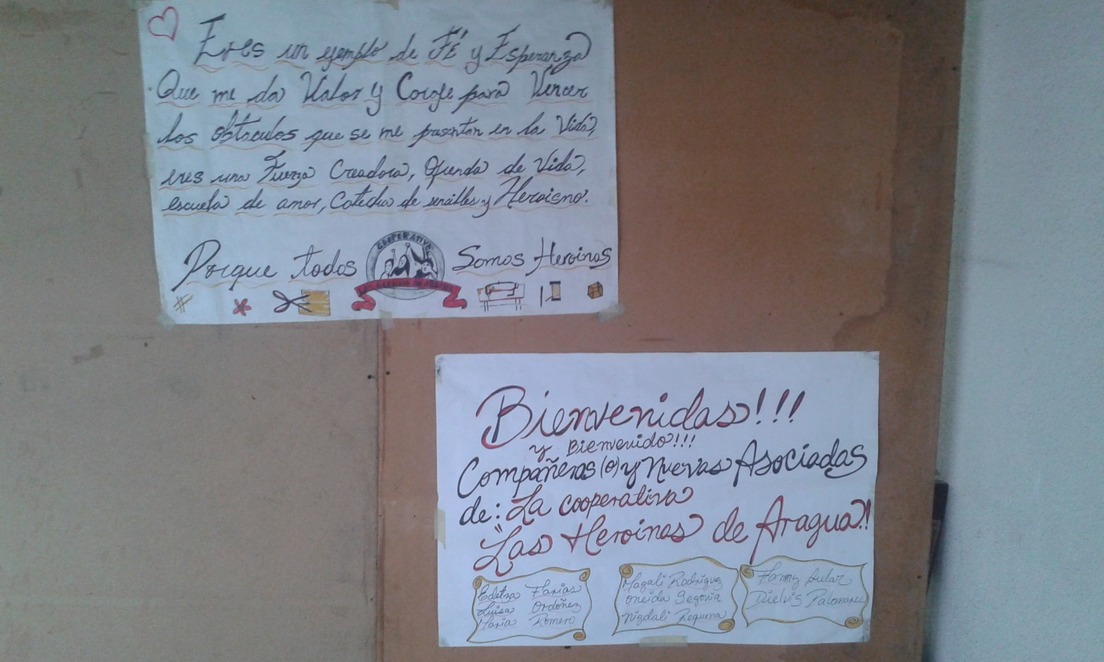 Eres un ejemplo de Fé y Esperanza
Que me da Valor y Coraje para Vencer
los obstaculos que se me presentan en la Vida,
eres una Fuerza Creadora, Ofrenda de Vida,
escuela de amor, Catedra de sencilles y Heroismo.
Porque todos
COOPERATIVA
Somos Heroinas
Bienvenidas!!!
y Bienvenido!!!
Compañeras (o) y Nuevas Asociadas
de: La cooperativa
"Las Heroinas de Aragua!!
Editza Farias
Luisa Ordoñez
Maria Romero
Magali Rodriguez
Oneida Segovia
Nizdali Requena
Fanny
Dielvis Palomares